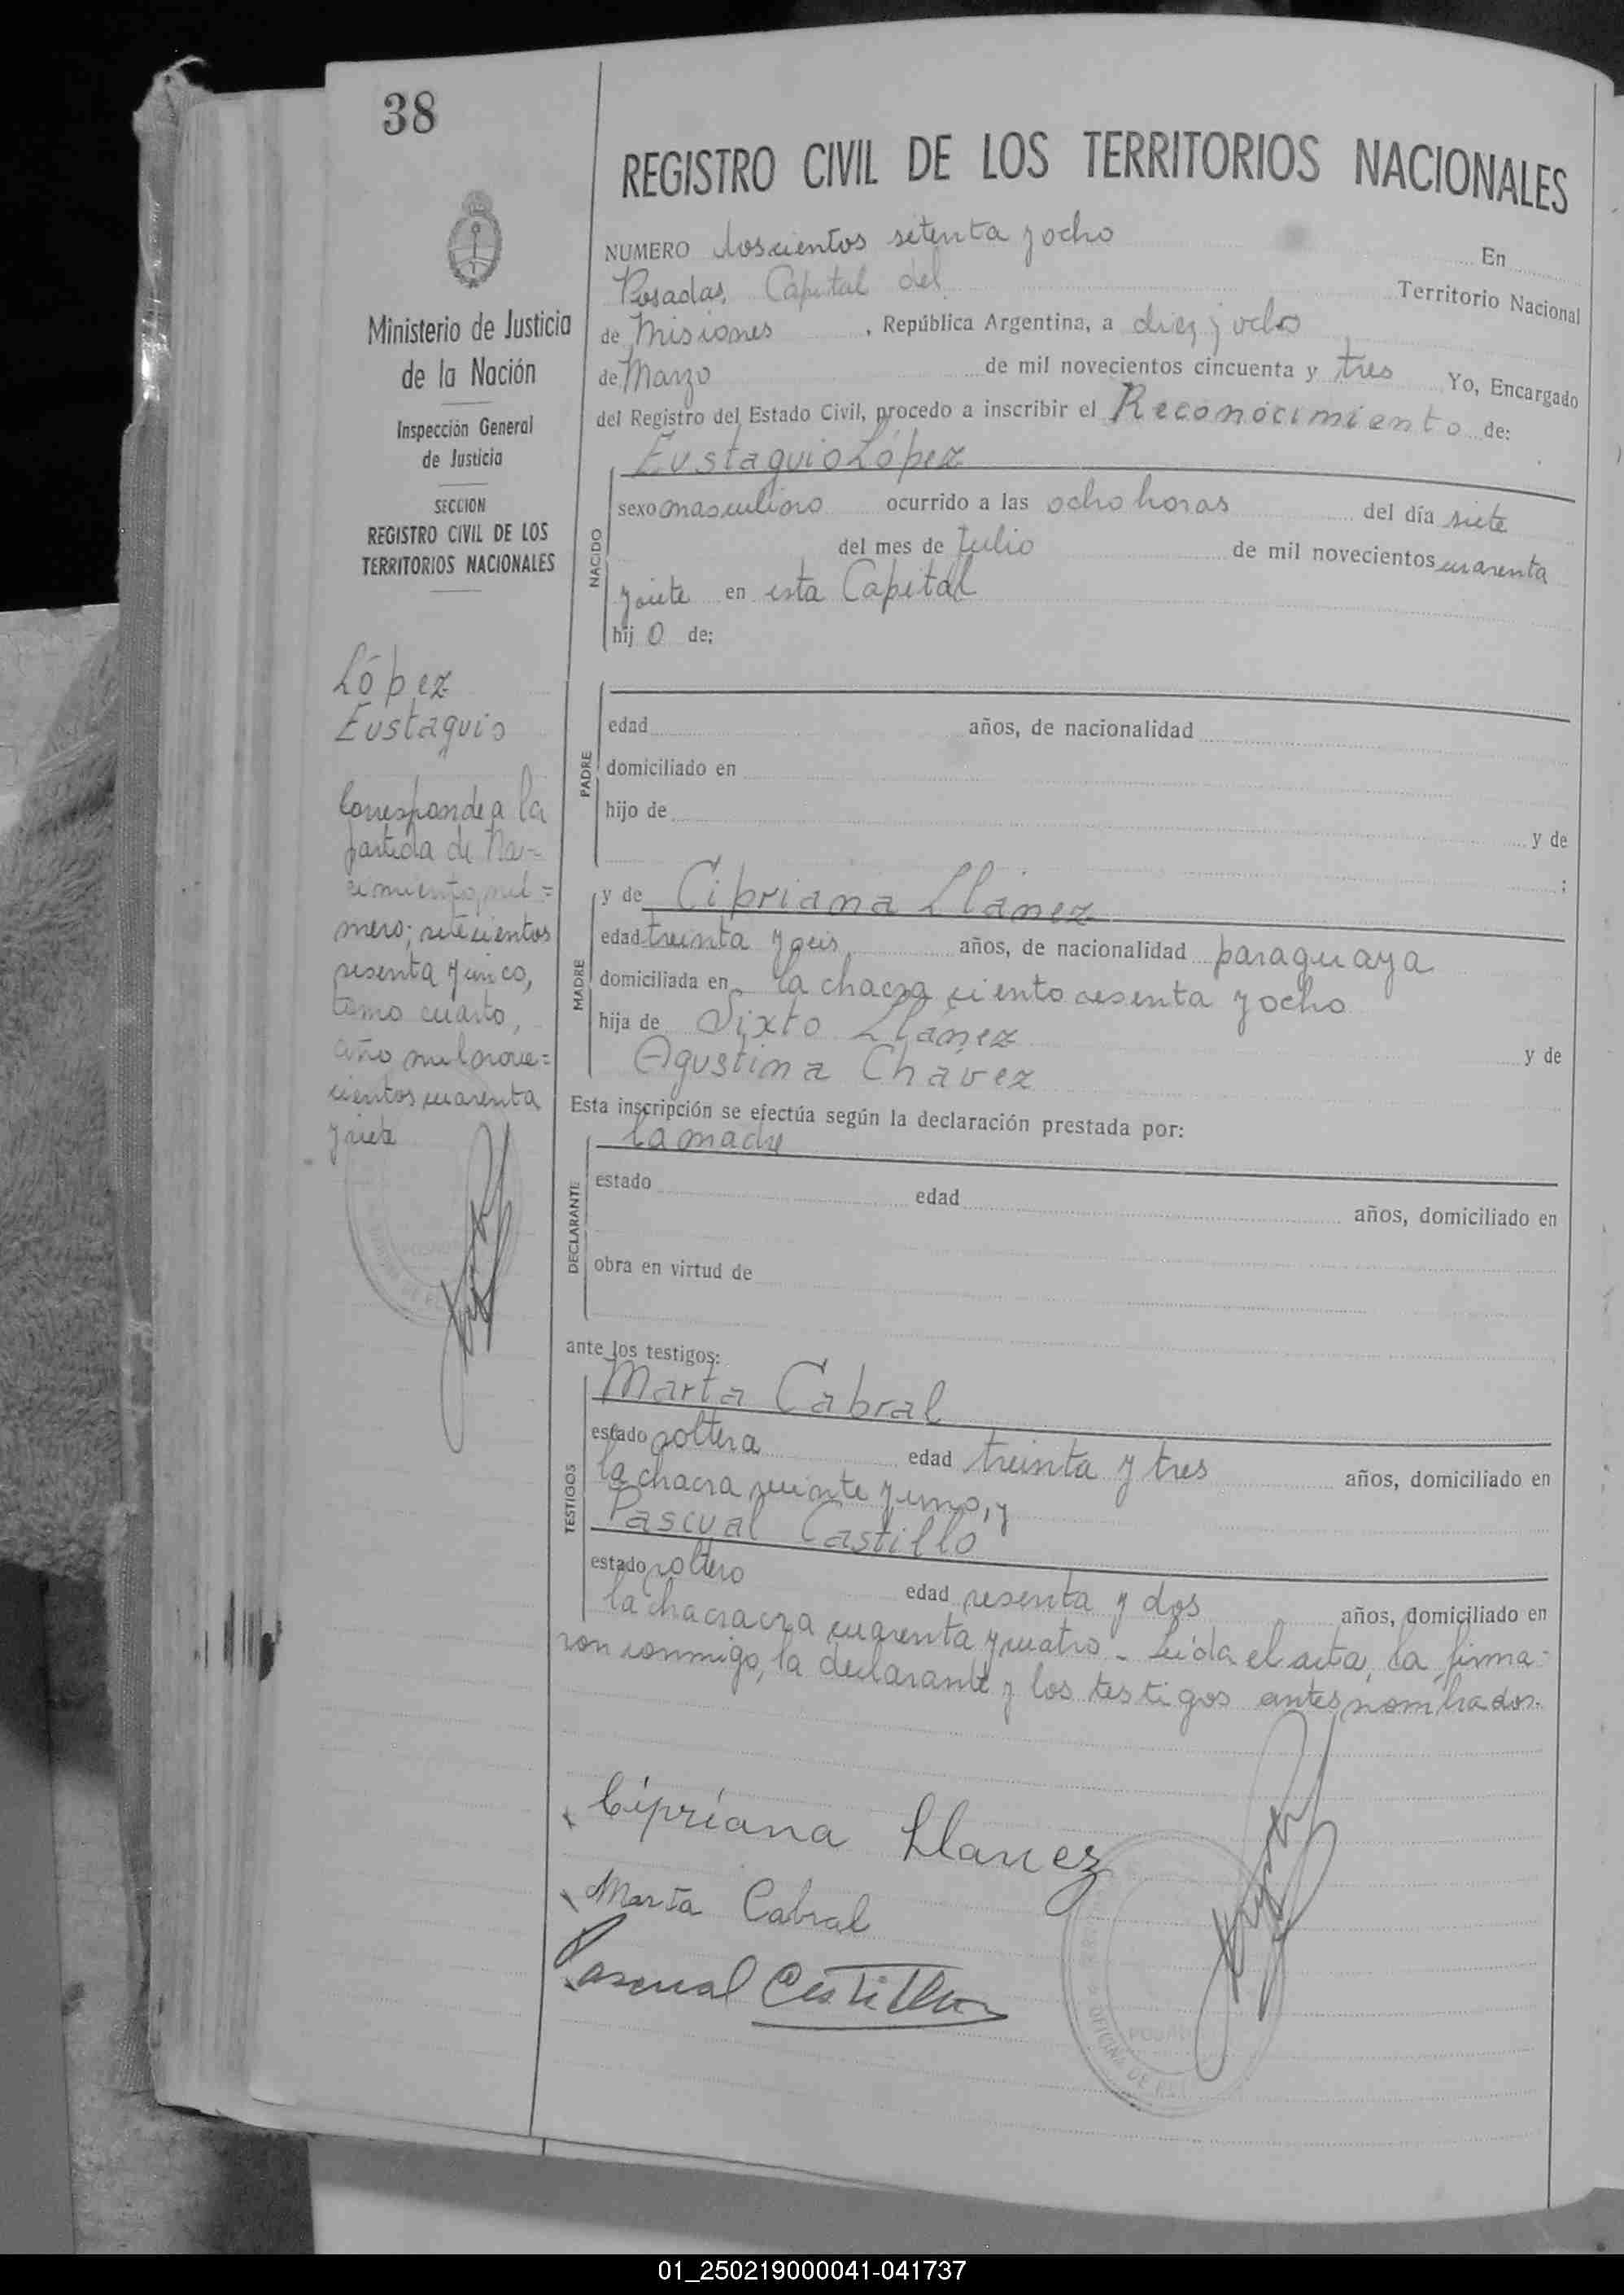 38
REGISTRO CIVIL DE LOS TERRITORIOS NACIONALES
NUMERO doscientos setenta y ocho En
Posadas, Capital del Territorio Nacional
de Misiones, República Argentina, a diez y ocho
de Marzo de mil novecientos cincuenta y tres Yo, Encargado
del Registro del Estado Civil, procedo a inscribir el Reconocimiento de:
Eustaquio López
NACIDO
sexo masculino ocurrido a las ocho horas del día siete
del mes de Julio de mil novecientos cuarenta
y siete en esta Capital
hij o de;
PADRE
edad años, de nacionalidad
domiciliado en
hijo de y de
;
MADRE
y de Cipriana Llánez
edad treinta y seis años, de nacionalidad paraguaya
domiciliada en la chacra ciento sesenta y ocho
hija de Sixto Llánez y de
Agustina Chávez
Esta inscripción se efectúa según la declaración prestada por:
la madre
DECLARANTE
estado edad años, domiciliado en
obra en virtud de
ante los testigos:
Marta Cabral
TESTIGOS
estado soltera edad treinta y tres años, domiciliado en
la chacra veinte y uno, y
Pascual Castillo
estado soltero edad sesenta y dos años, domiciliado en
la chacracra cuarenta y cuatro - Leída el acta, la firma-
ron conmigo, la declarante y los testigos antes nombrados.
Cipriana Llanez
Marta Cabral
Pascual Castillo
POSADAS
OFICINA DE
Ministerio de Justicia
de la Nación
Inspección General
de Justicia
SECCION
REGISTRO CIVIL DE LOS
TERRITORIOS NACIONALES
López
Eustaquio
Corresponde a la
partida de Na-
cimiento, nú=
mero; setecientos
sesenta y cinco,
tomo cuarto,
año mil nove=
cientos cuarenta
y siete
01_250219000041-041737